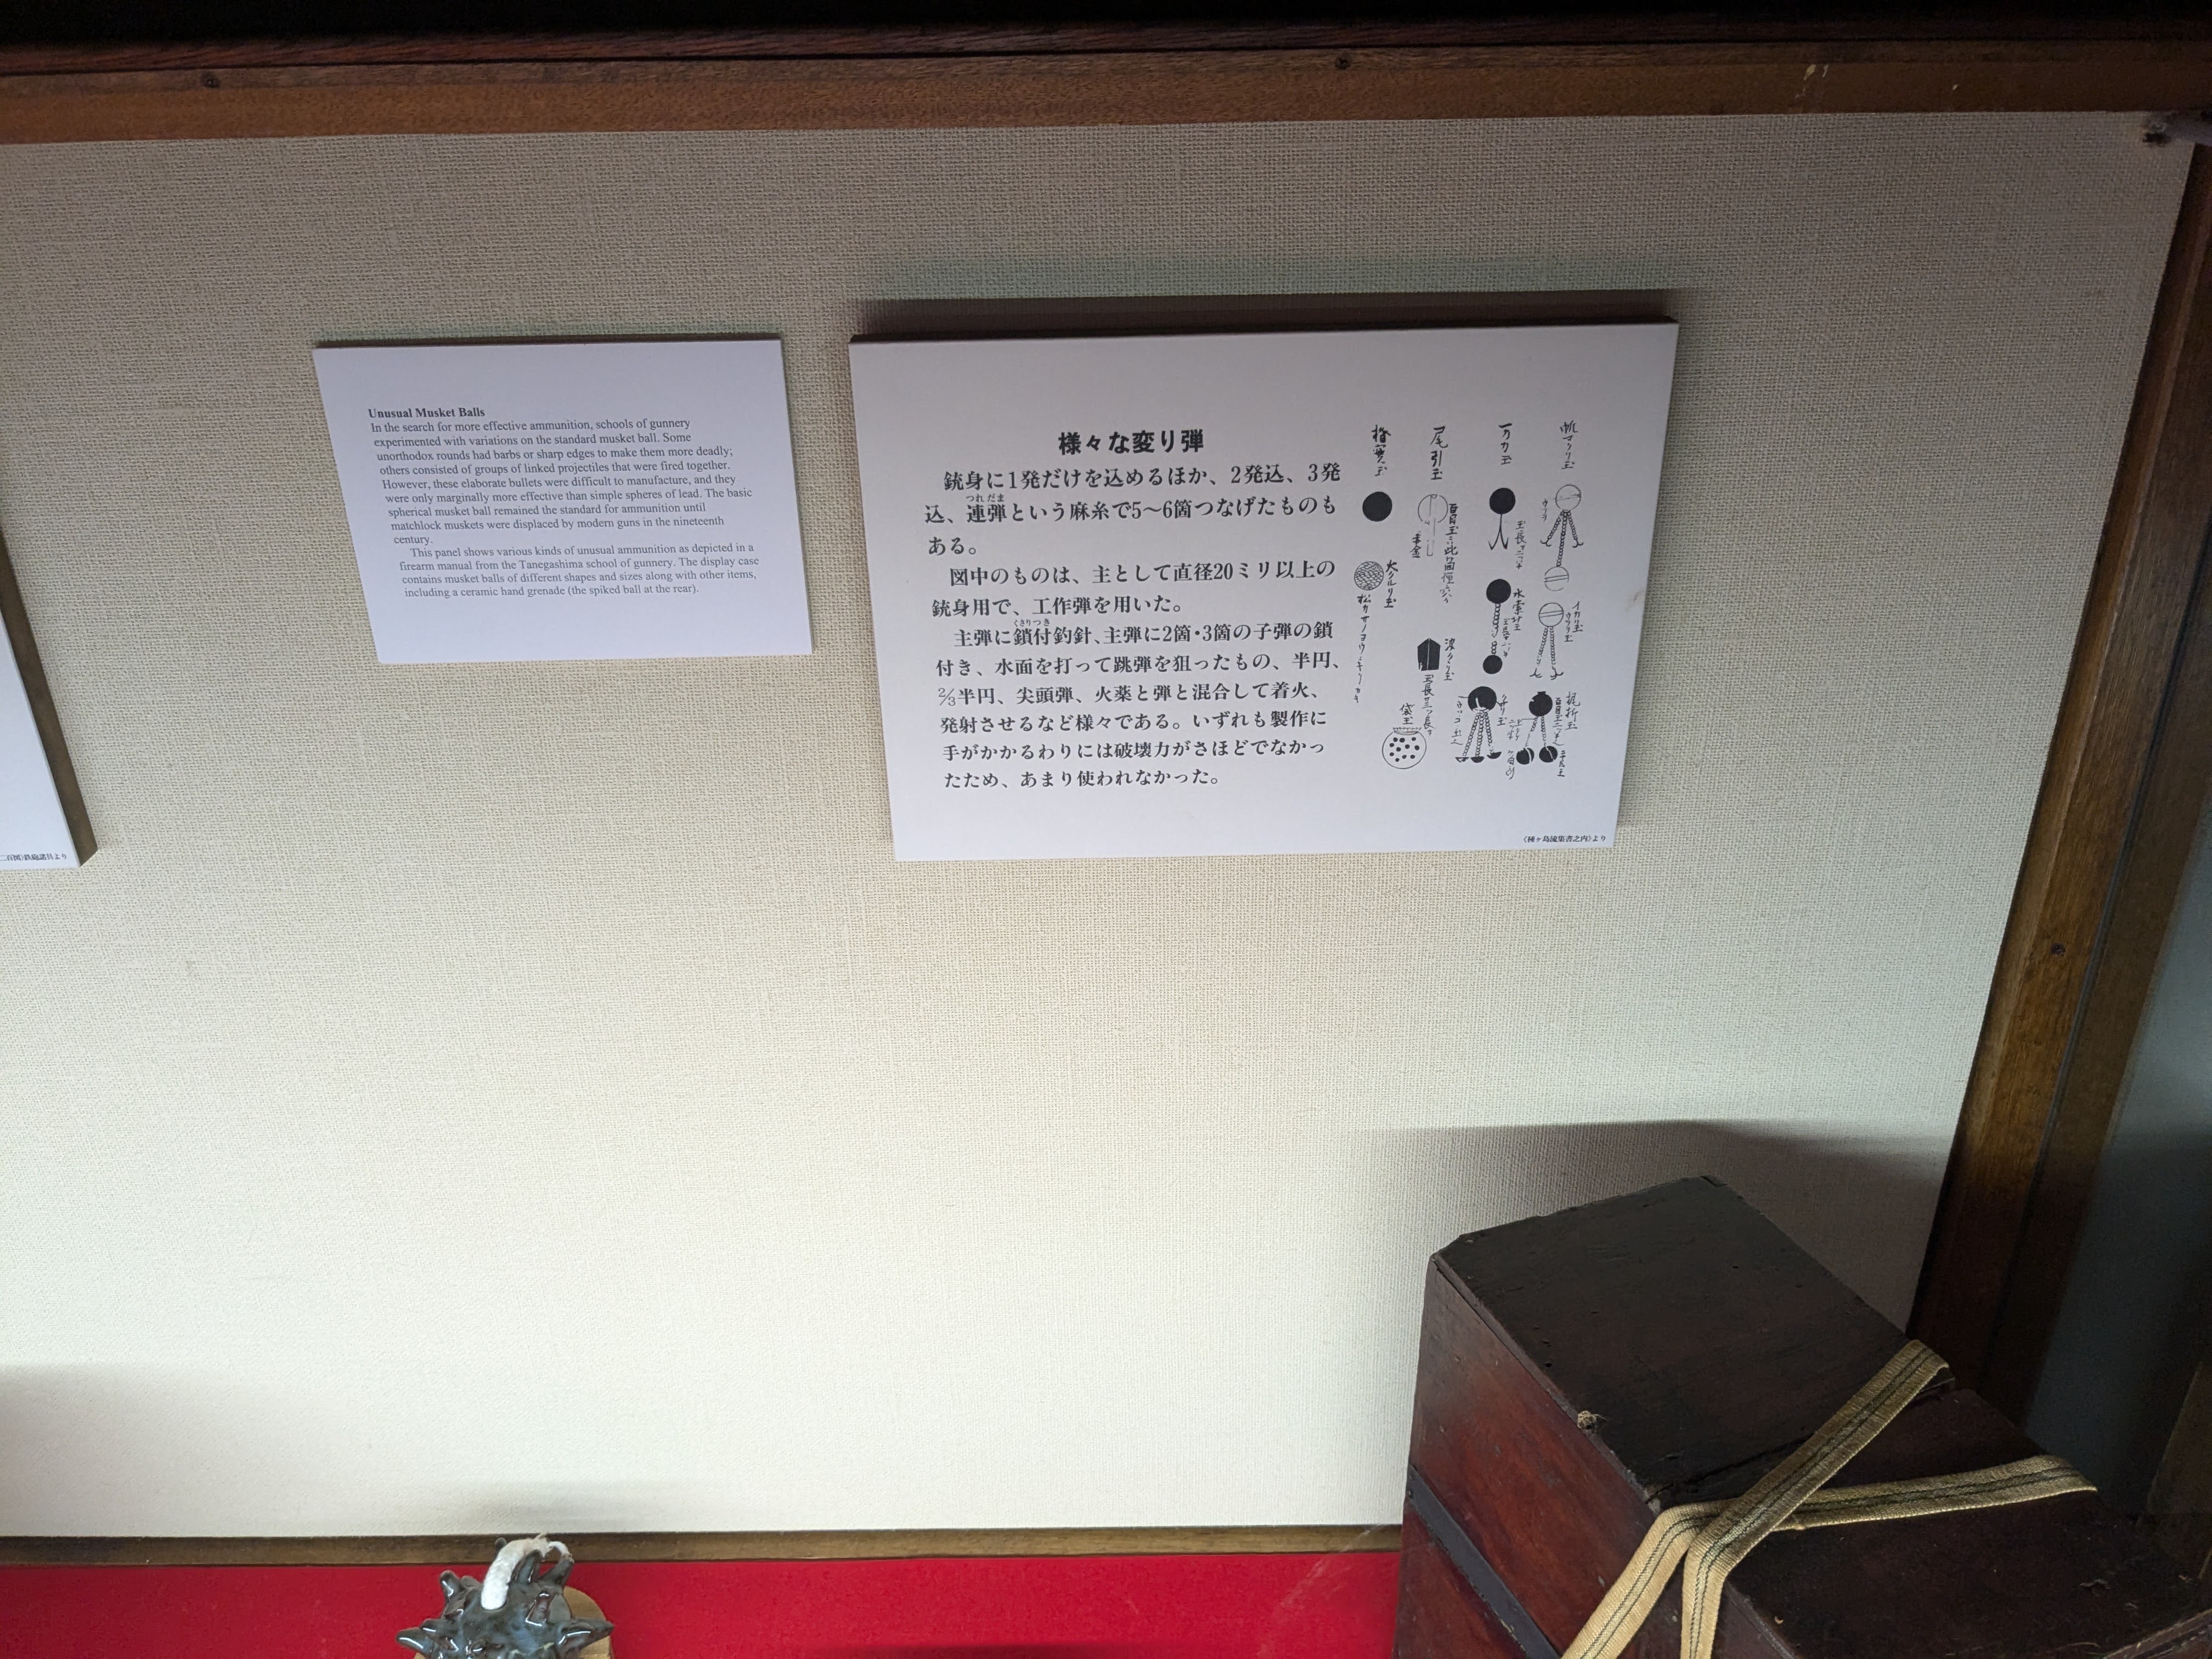 Unusual Musket Balls
In the search for more effective ammunition, schools of gunnery
experimented with variations on the standard musket ball. Some
unorthodox rounds had barbs or sharp edges to make them more deadly;
others consisted of groups of linked projectiles that were fired together.
However, these elaborate bullets were difficult to manufacture, and they
were only marginally more effective than simple spheres of lead. The basic
spherical musket ball remained the standard for ammunition until
matchlock muskets were displaced by modern guns in the nineteenth
century.
This panel shows various kinds of unusual ammunition as depicted in a
firearm manual from the Tanegashima school of gunnery. The display case
contains musket balls of different shapes and sizes along with other items,
including a ceramic hand grenade (the spiked ball at the rear).
様々な変り弾
銃身に1発だけを込めるほか、2発込、3発
つれだま
込、連弾という麻糸で5〜6箇つなげたものも
ある。
図中のものは、主として直径20ミリ以上の
銃身用で、工作弾を用いた。
くさりつき
主弾に鎖付釣針、主弾に2箇・3箇の子弾の鎖
付き、水面を打って跳弾を狙ったもの、半円、
⅔半円、尖頭弾、火薬と弾と混合して着火、
発射させるなど様々である。いずれも製作に
手がかかるわりには破壊力がさほどでなかっ
たため、あまり使われなかった。
尾引玉
袋玉
〈種ヶ島流集書之内〉より